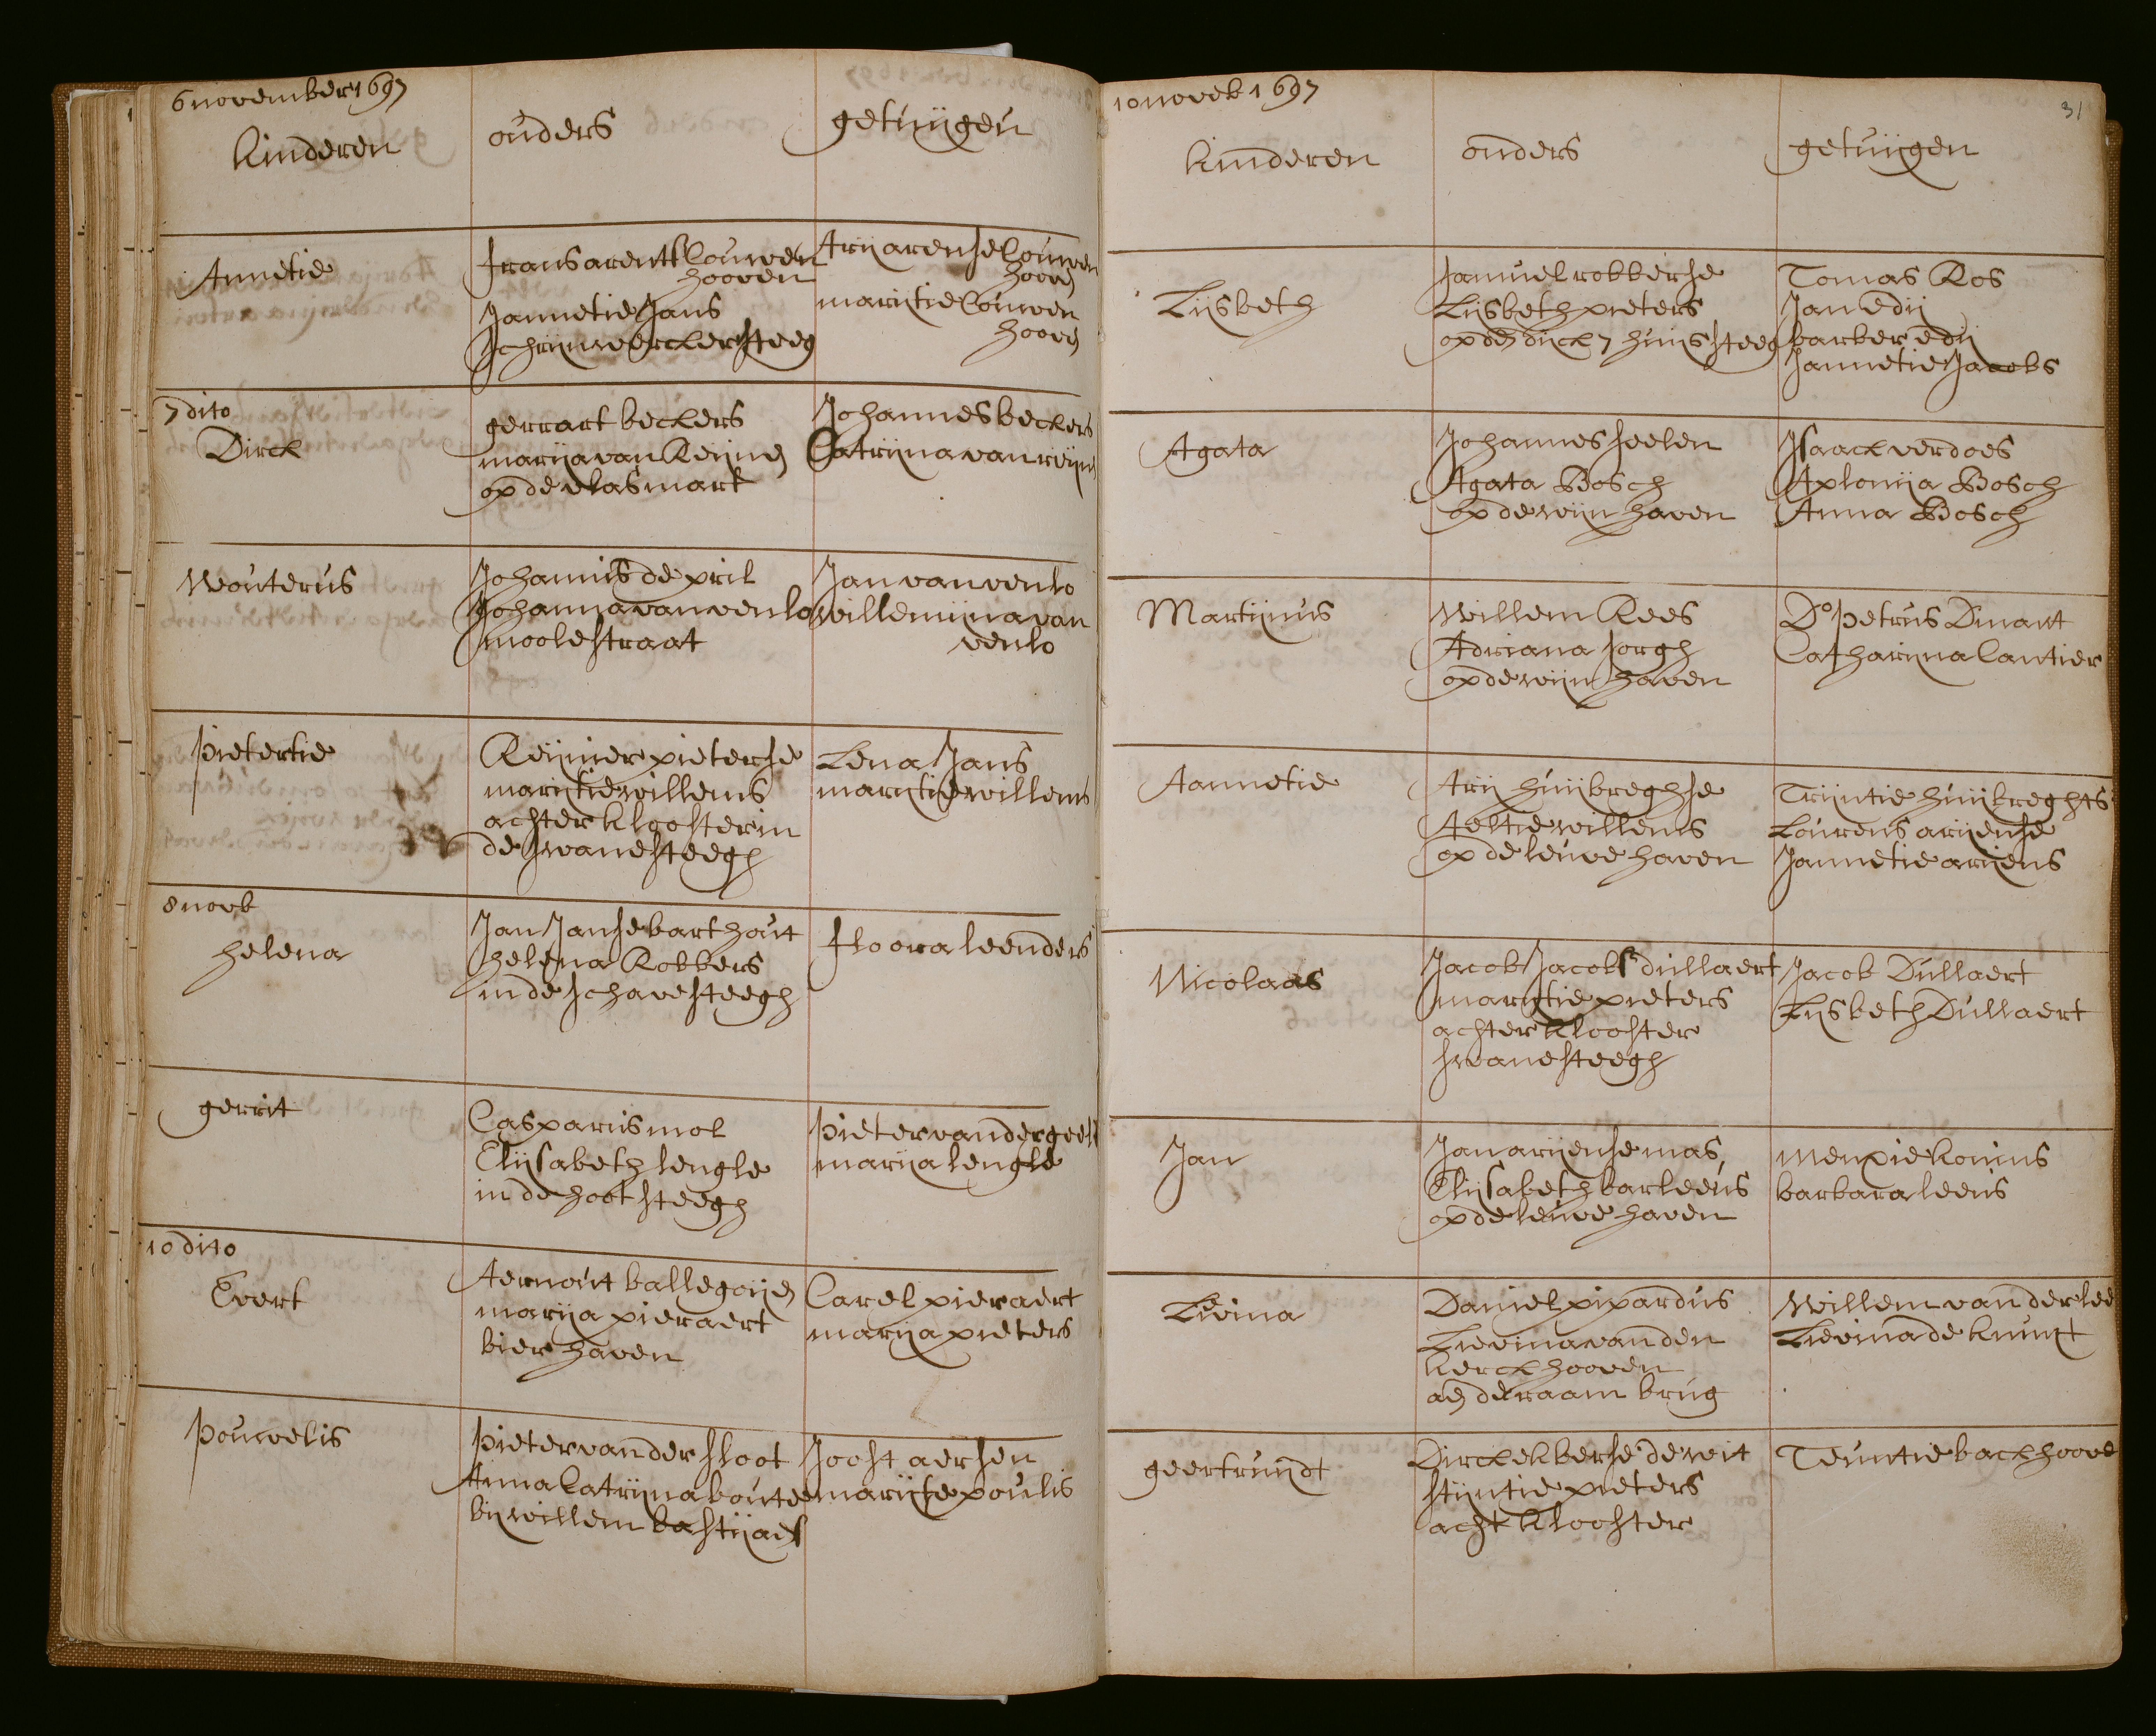 6 november 1697
kinderen
ouders
getuijgen
Annetie
fransarentsLouwen
hooven
Jannetie Jans
schrijnwerckersteeg
Arij arense Louwen
hooven
marijtie Louwen
hooven
7 dito
Dirck
gerrart beckers
marija van Reijnen
op de vlasmart
Johannes beckers
Catrijna van reijnen
Wouterus
Johannis de pril
Johanna van venlo
moolestraat
Jan van venlo
willemijna van
venlo
pietertie
Reijnier pieterse
marijtie willems
achter klooster in
de swanesteegh
Lena Jans
marijtie willems
8 novb
helena
Jan Janse barthout
helena Robbers
in de schavesteegh
floora leenders
gerrit
Casparus mol
Elijsabeth lengle
in de hootsteegh
pieter van der geest
marija lengle
10 dito
Evert
Aernout ballegoijen
marija pieraert
bierhaven
Carel pieraert
marija pieters
pouwelis
pieter van der sloot
Anna Catrijna boute
bij willem bastijaes
Joost aersen
marijtie poulis
10 noveb 1697
31
kinderen
ouders
getuijgen
Lijsbeth
samuel robberse
Lijsbeth pieters
op den dijck 7 huijs steeg
Tomas Ros
Jan edij
barber edij
Jannetie Jacobs
Agata
Johannes seelen
Agata Bosch
op de wijnhaven
Isaack verdoes
Aplonija Bosch
Anna Bosch
Martijnus
Willem Rees
Adriana sorgh
op de wijnhaven
Do petrus Dinant
Catharijna Cantier
Aannetie
Arij huijbreghse
Aeltie willems
op de leuvehaven
Trijntie huijbreghts
Lourens arijense
Jannetie arijens
Nicolaas
Jacob Jacobs dullaert
marijtie pieters
achter klooster
swanesteegh
Jacob Dullaert
Lijsbeth Dullaert
Jan
Jan arijense mas
Elijsabeth barleeus
op de leuve haven
menpie konins
barbara leens
Lievina
Daniel pipardus
Lievina van den
kerckhooven
aen de raam brug
Willem van der lee
Lievina de knuijt
geertruijdt
Dirck ekberse de wit
stijntie pieters
acht klooster
Teuntie backhoove